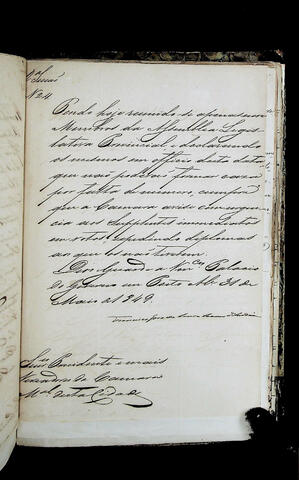 N 24
Tendo hoje reunido-se apenas
Membros da Assemblea Legis-
lativa Provincial, e declarando
os mesmos em officio desta data
que não podem tomar
por falta de numero, cumpre
que a Camara avise com urgen-
cia aos Supplentes immediatos
em votos, expedindo diplomas
aos que os não tiverem.
Deos Guarde a Vm.ces Palacio
do Governo em 31 de
Maio de 1849.
Snr.es Presidente e mais
Vereadores da Camara
M.al desta Cidade